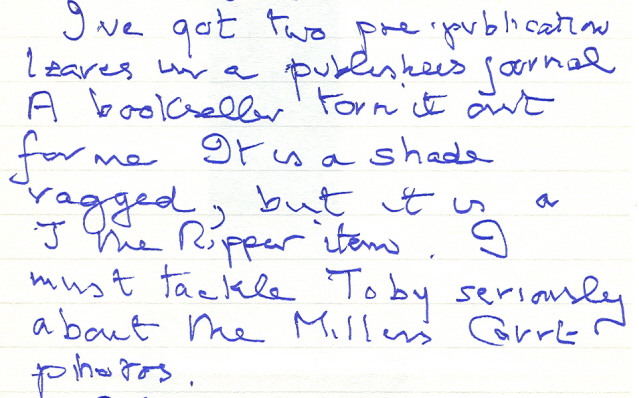 I've got two pre-publication
leaves in a publishers journal
A bookseller torn it out
for me It is a shade
ragged, but it is a
J the Ripper item. I
must tackle Toby seriously
about the Millers Court
photos.